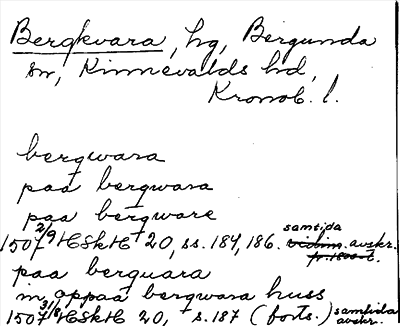 Bergkvara, hg, Bergunda
sn, Kinnevalds hd,
Kronob. l.
bergwara
paa bergwara
paa bergware
1507 2/9 HSkH 20, ss. 184, 186. samtida avskr.
paa berguara
in oppaa bergwara huss
1507 3/8 HSkH 20, s. 187 (forts.) samtida avskr.